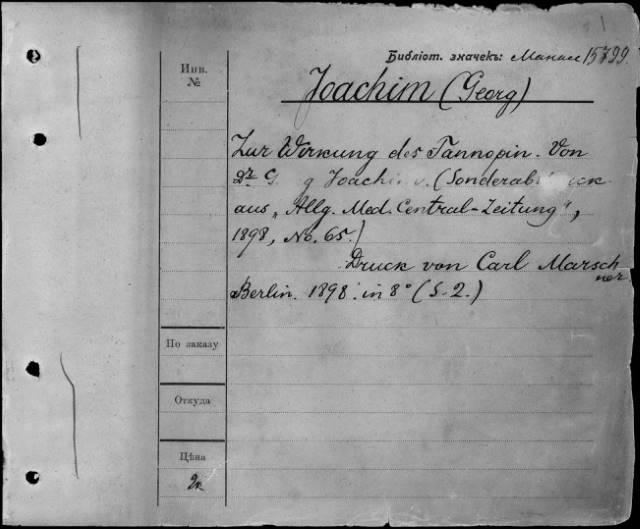 1
Библіот. значекъ: Манасс 15799.
Инв.
№
Joachim (Georg)
Zur Wirkung des Tannopin. Von
Dr G g Joachim. (Sonderabdruck
aus „Allg. Med. Central-Zeitung“,
1898, No. 65.)
Druck von Carl Marsch
ner
Berlin. 1898. in 8° (S. 2.)
По заказу
Откуда
Цѣна
2к